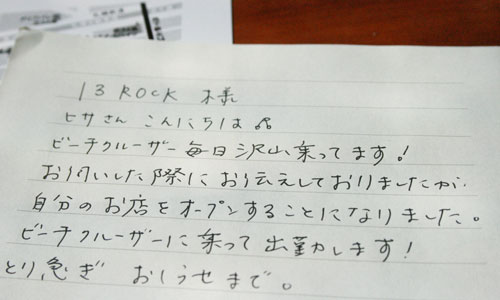 13 ROCK 様
ヒサさん こんにちは ♪♪
ビーチクルーザー毎日沢山乗ってます!
お伺いした際にお伝えしておりましたが
自分のお店をオープンすることになりました。
ビーチクルーザーに乗って出勤します!
とり急ぎ おしらせまで。